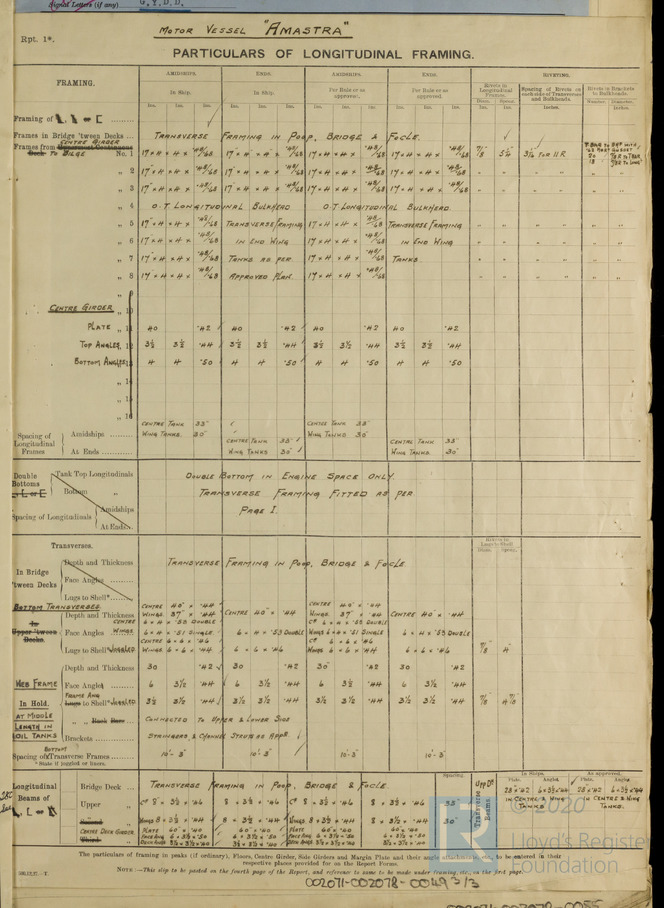 Signal Letters (if any) G.Y.D.D.
Rpt. 1*.
MOTOR VESSEL "AMASTRA"
PARTICULARS OF LONGITUDINAL FRAMING.
FRAMING.
AMIDSHIPS. ENDS. AMIDSHIPS. ENDS. RIVETING.
In Ship. In Ship. Per Rule or as approved. Per Rule or as approved.
Rivets in Longitudinal Frames. Spacing of Rivets on each side of Transverses and Bulkheads. Rivets in Brackets to Bulkheads.
Ins. Ins. Ins. Ins. Ins. Ins. Ins. Ins. Ins. Ins. Ins. Ins. Diam. Spacg. Inches. Number. Diameter. Inches.
Framing of
Frames in Bridge 'tween Decks ... TRANSVERSE FRAMING IN POOP, BRIDGE & FOCLE.
CENTRE GIRDER
Frames from TO BILGE No. 1 17 × 4 × 4 × .48/.68 17 × 4 × 4 × .48/.68 17 × 4 × 4 × .48/.68 17 × 4 × 4 × .48/.68 7/8 3½ FOR 11 R
„ 2 17 × 4 × 4 × .48/.68 17 × 4 × 4 × .48/.68 17 × 4 × 4 × .48/.68 17 × 4 × 4 × .48/.68
„ 3 17 × 4 × 4 × .48/.68 17 × 4 × 4 × .48/.68 17 × 4 × 4 × .48/.68 17 × 4 × 4 × .48/.68
„ 4 O.T LONGITUDINAL BULKHEAD O.T LONGITUDINAL BULKHEAD
„ 5 17 × 4 × 4 × .48/.68 TRANSVERSE FRAMING 17 × 4 × 4 × .48/.68 TRANSVERSE FRAMING
„ 6 17 × 4 × 4 × .48/.68 IN END WING 17 × 4 × 4 × .48/.68 IN END WING
„ 7 17 × 4 × 4 × .48/.68 TANKS AS PER 17 × 4 × 4 × .48/.68 TANKS.
„ 8 17 × 4 × 4 × .48/.68 APPROVED PLAN. 17 × 4 × 4 × .48/.68
„ 9
CENTRE GIRDER „ 10
PLATE „ 11 40 .42 40 .42 40 .42 40 .42
TOP ANGLES „ 12 3½ 3½ .44 3½ 3½ .44 3½ 3½ .44 3½ 3½ .44
BOTTOM ANGLES 13 4 4 .50 4 4 .50 4 4 .50 4 4 .50
„ 14
„ 15
„ 16
CENTRE TANK 33" CENTRE TANK 33"
Spacing of Longitudinal Frames
Amidships .......... WING TANKS. 30" WING TANKS 30"
CENTRE TANK 33" CENTRE TANK 33"
At Ends ........... WING TANKS 30" WING TANKS. 30"
Double Bottoms
Tank Top Longitudinals DOUBLE BOTTOM IN ENGINE SPACE ONLY.
Bottom „ TRANSVERSE FRAMING FITTED AS PER
Spacing of Longitudinals Amidships PAGE 1.
At Ends
Transverses.
Rivets in Lugs to Shell
Diam. Spacg.
In Bridge 'tween Decks
Depth and Thickness TRANSVERSE FRAMING IN POOP, BRIDGE & FOCLE
Face Angles ........
Lugs to Shell*
BOTTOM TRANSVERSES CENTRE 40" × .44 CENTRE 40" × .44
In Upper 'tween Decks.
Depth and Thickness WINGS. 37" × .44 CENTRE 40" × .44 WINGS. 37" × .44 CENTRE 40 × .44
CENTRE 6 × 4 × .53 DOUBLE
Face Angles WINGS 6 × 4 × .51 SINGLE 6 × 4 × .53 DOUBLE WINGS 6 × 4 × .51 SINGLE 6 × 4 × .53 DOUBLE
CENTRE 6 × 6 × .46
Lugs to Shell* JOGGLED WINGS 6 × 6 × .44 6 × 6 × .46 6 × 6 × .46 7/8 4"
Depth and Thickness 30 .42 30 .42 30" .42 30 .42
WEB FRAME Face Angles 6 3½ .44 6 3½ .44 6 3½ .44 6 3½ .44
FRAME ANG
In Hold. Lugs to Shell* JOGGLED 3½ 3½ .44 3½ 3½ .44 3½ 3½ .44 3½ 3½ .44 7/8
AT MIDDLE LENGTH IN OIL TANKS
„ „ CONNECTED TO UPPER & LOWER SIDE
Brackets ............ STRINGERS & CHANNEL STRUTS AS APPD.
BOTTOM
Spacing of Transverse Frames ... 10'- 3" 10'- 3" 10'- 3" 10'- 3"
* State if joggled or liners.
Longitudinal Beams of
Bridge Deck ... TRANSVERSE FRAMING IN POOP, BRIDGE & FOCLE.
Spacing.
In Ships. As approved.
Plate. Angles. Plate. Angles.
28 × .42 6 × 3½ × .44 28 × .42 6 × 3½ × .44
IN CENTRE & WING TANKS. IN CENTRE & WING TANKS.
Transverse Beams
Upper „ CR 8 × 3½ × .46 8 × 3½ × .46 CR 8 × 3½ × .46 8 × 3½ × .46 33"
Second WINGS 8 × 3½ × .44 8 × 3½ × .44 WINGS 8 × 3½ × .44 8 × 3½ × .44 30"
CENTRE DECK GIRDER PLATE 60" × .40 60" × .40 PLATE 60" × .40 60" × .40
Third
The particulars of framing in peaks (if ordinary), Floors, Centre Girder, Side Girders and Margin Plate and their angle attachments, etc., to be entered in their
respective places provided for on the Report Forms.
NOTE :—This slip to be pasted on the fourth page of the Report, and reference to same to be made under framing, etc., on the first page.
© 2020
Lloyd's Register
Foundation
002071-002078-0049 3/3